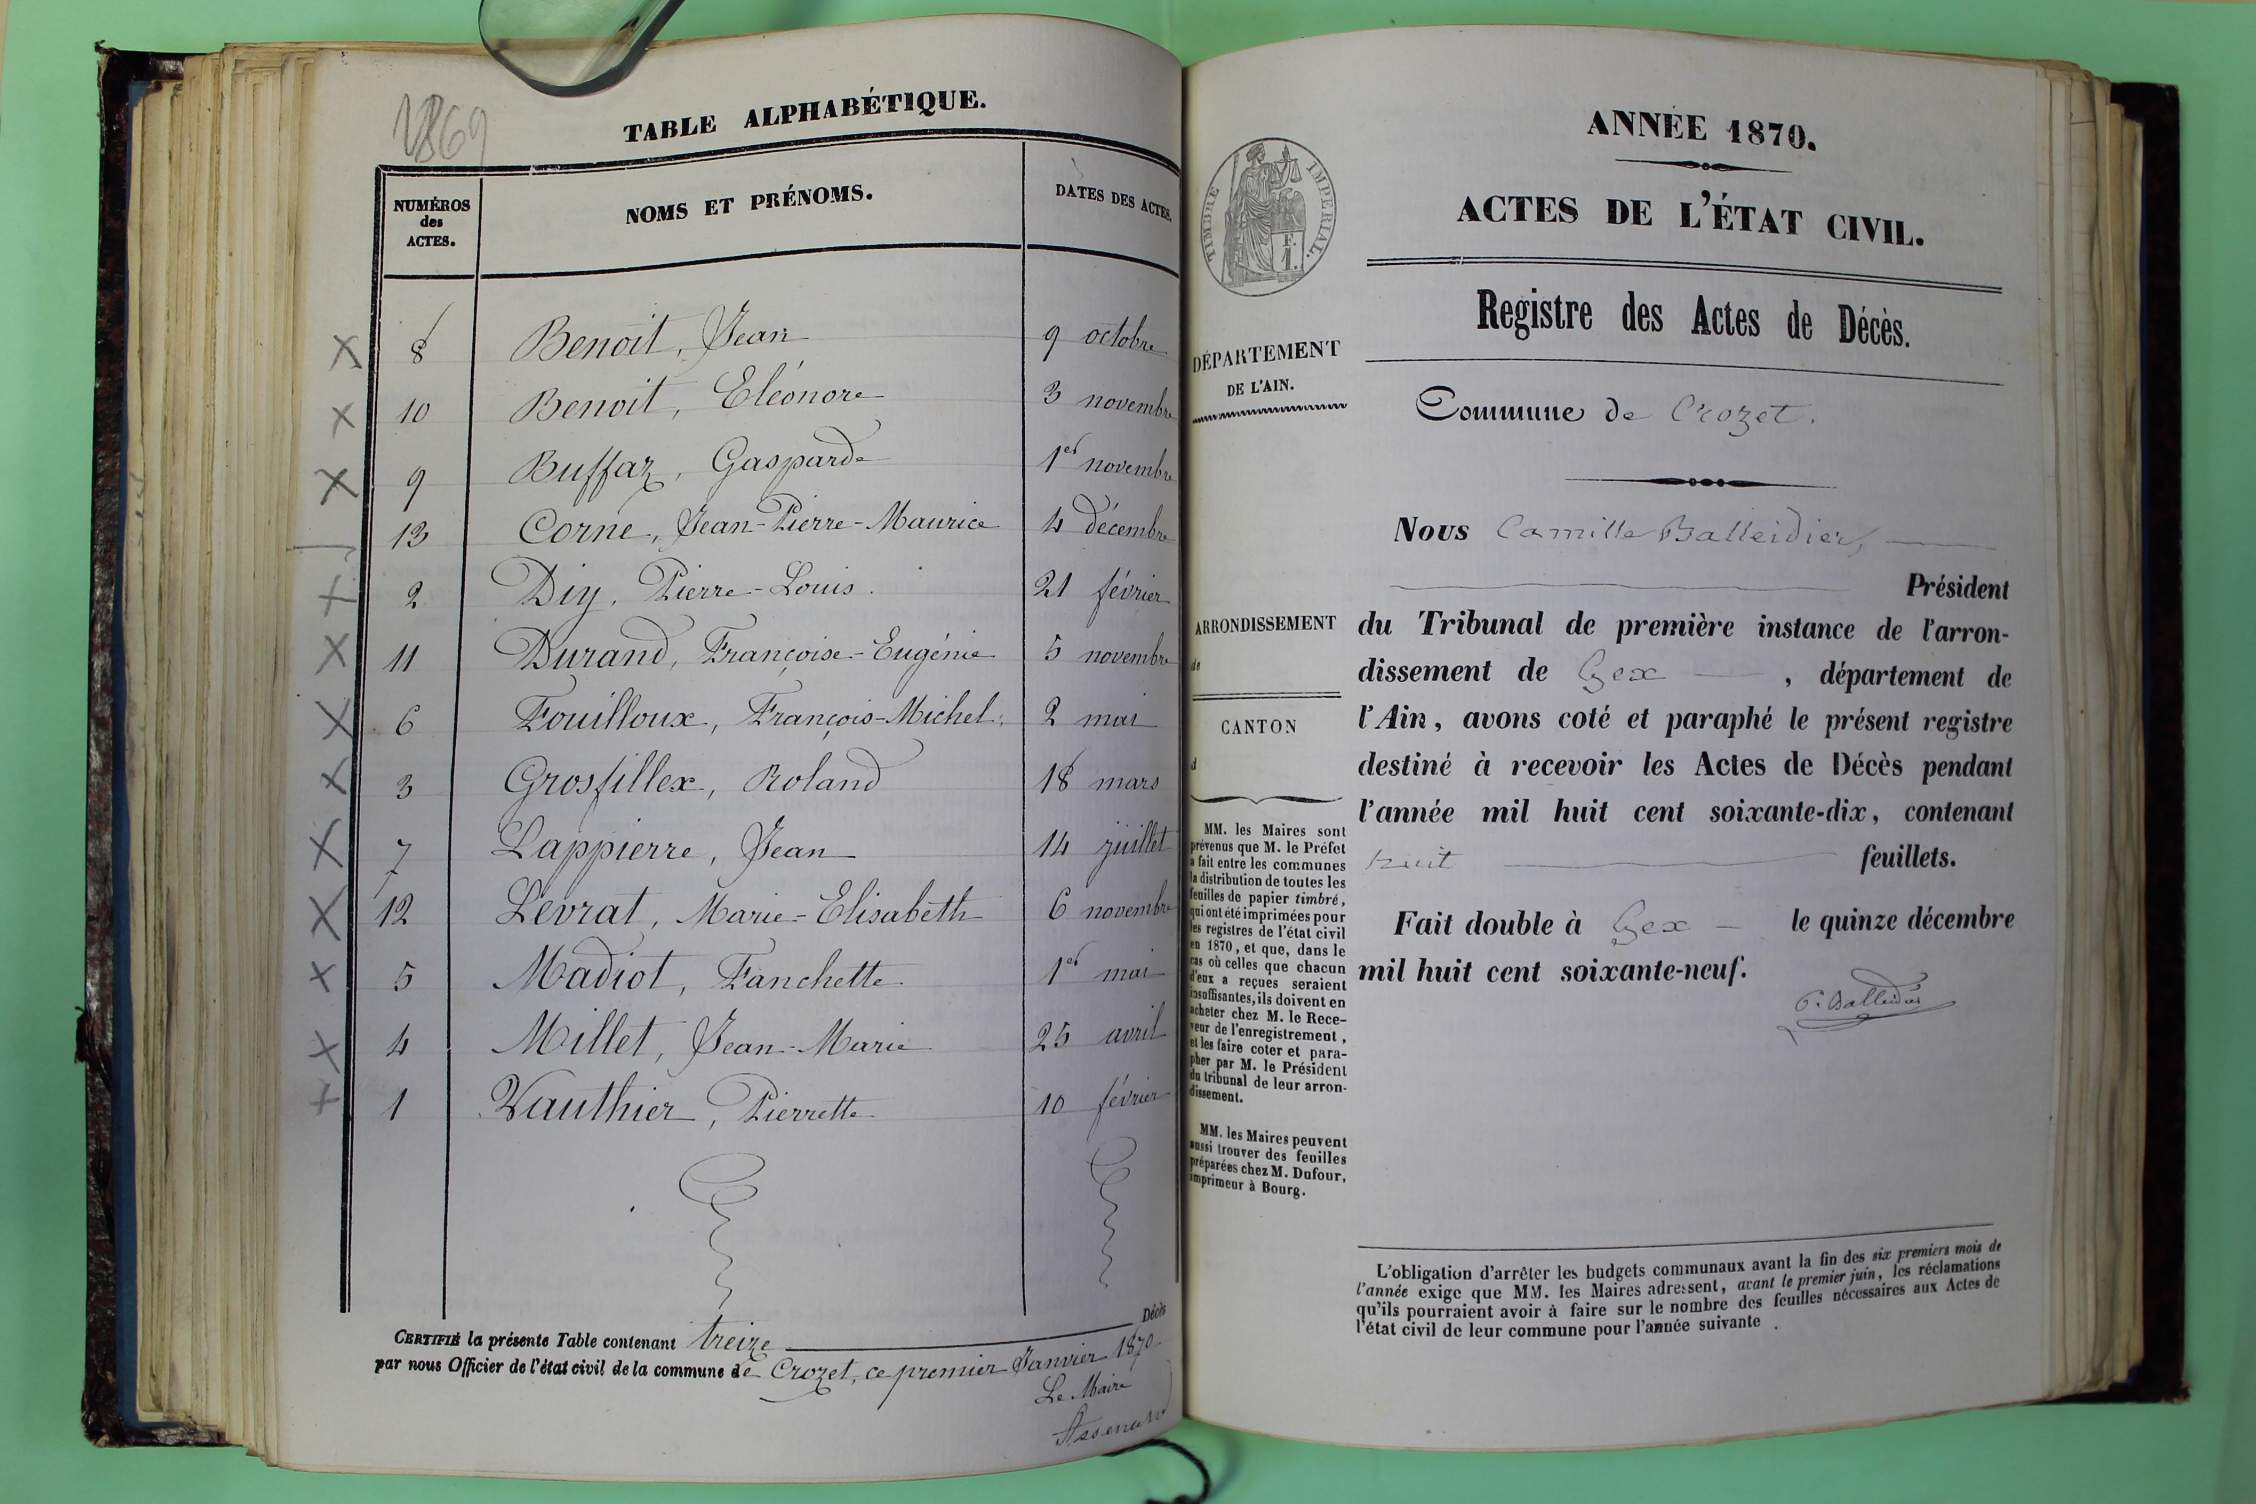 1869
TABLE ALPHABÉTIQUE.
NUMÉROS des ACTES. NOMS ET PRÉNOMS. DATES DES ACTES.
8 Benoit, Jean 9 octobre
10 Benoit, Eléonore 3 novembre
9 Buffaz, Gasparde 1er novembre
13 Corne, Jean-Pierre-Maurice 4 décembre
2 Diy, Pierre-Louis. 21 février
11 Durand, Françoise-Eugénie 5 novembre
6 Fouilloux, François-Michel. 2 mai
3 Grosfillex, Roland 18 mars
7 Lappierre, Jean 14 juillet
12 Levrat, Marie-Elisabeth 6 novembre
5 Madiot, Fanchette 1er mai
4 Millet, Jean-Marie 25 avril
1 Vauthier, Pierrette 10 février
CERTIFIÉ la présente Table contenant treize Décès
par nous Officier de l'état civil de la commune de Crozet, ce premier Janvier 1870
Le Maire
ANNÉE 1870.
ACTES DE L'ÉTAT CIVIL.
TIMBRE IMPÉRIAL.
F. 1.
Registre des Actes de Décès.
DÉPARTEMENT
DE L'AIN.
Commune de Crozet.
ARRONDISSEMENT
de
CANTON
d
MM. les Maires sont
prévenus que M. le Préfet
a fait entre les communes
la distribution de toutes les
feuilles de papier timbré,
qui ont été imprimées pour
les registres de l'état civil
en 1870, et que, dans le
cas où celles que chacun
d'eux a reçues seraient
insuffisantes, ils doivent en
acheter chez M. le Rece-
veur de l'enregistrement,
et les faire coter et para-
pher par M. le Président
du tribunal de leur arron-
dissement.
MM. les Maires peuvent
aussi trouver des feuilles
préparées chez M. Dufour,
imprimeur à Bourg.
Nous Camille Balleidier,
Président
du Tribunal de première instance de l'arron-
dissement de Gex, département de
l'Ain, avons coté et paraphé le présent registre
destiné à recevoir les Actes de Décès pendant
l'année mil huit cent soixante-dix, contenant
huit feuillets.
Fait double à Gex le quinze décembre
mil huit cent soixante-neuf.
C. Balleidier
L'obligation d'arrêter les budgets communaux avant la fin des six premiers mois de
l'année exige que MM. les Maires adressent, avant le premier juin, les réclamations
qu'ils pourraient avoir à faire sur le nombre des feuilles nécessaires aux Actes de
l'état civil de leur commune pour l'année suivante.